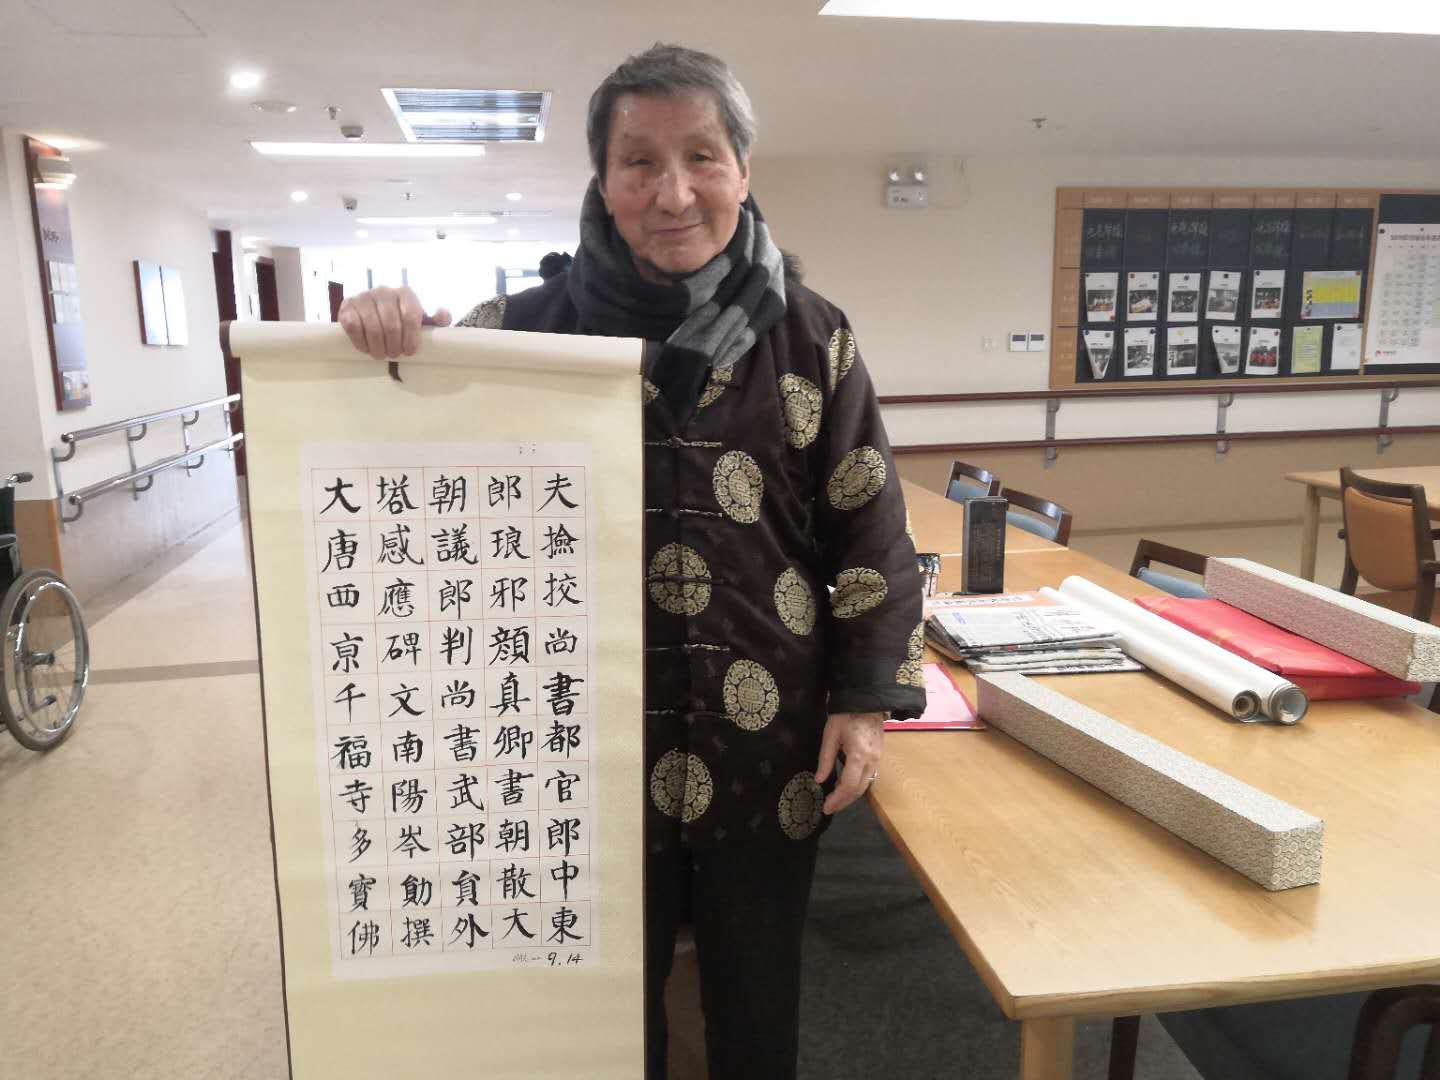 大唐西亰千福寺多寶佛
塔感應碑文南陽岑勛撰
朝議郎判尚書武部貟外
郎琅邪顏真卿書朝散大
夫撿挍尚書都官郎中東
9.14